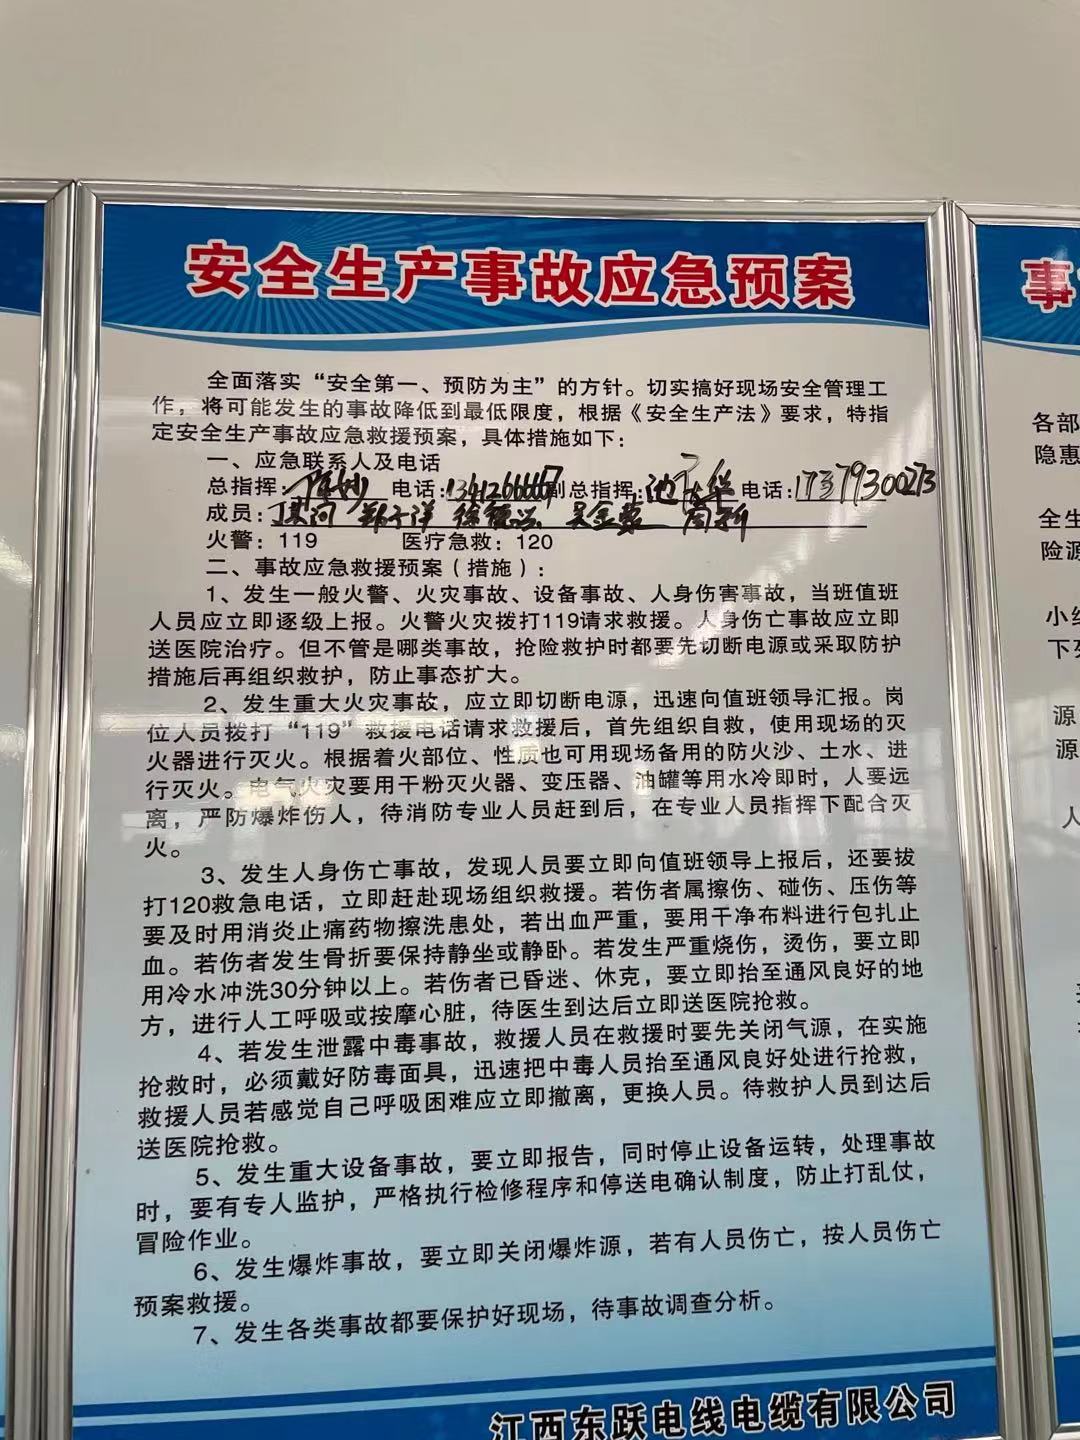 安全生产事故应急预案
事
全面落实“安全第一、预防为主”的方针。切实搞好现场安全管理工
作，将可能发生的事故降低到最低限度，根据《安全生产法》要求，特指
定安全生产事故应急救援预案，具体措施如下：
一、应急联系人及电话
总指挥： 电话： 副总指挥： 电话：17379300273
成员： 郑子洋
火警：119 医疗急救：120
二、事故应急救援预案（措施）：
1、发生一般火警、火灾事故、设备事故、人身伤害事故，当班值班
人员应立即逐级上报。火警火灾拨打119请求救援。人身伤亡事故应立即
送医院治疗。但不管是哪类事故，抢险救护时都要先切断电源或采取防护
措施后再组织救护，防止事态扩大。
2、发生重大火灾事故，应立即切断电源，迅速向值班领导汇报。岗
位人员拨打“119”救援电话请求救援后，首先组织自救，使用现场的灭
火器进行灭火。根据着火部位、性质也可用现场备用的防火沙、土水、进
行灭火。电气火灾要用干粉灭火器、变压器、油罐等用水冷即时，人要远
离，严防爆炸伤人，待消防专业人员赶到后，在专业人员指挥下配合灭
火。
3、发生人身伤亡事故，发现人员要立即向值班领导上报后，还要拔
打120救急电话，立即赶赴现场组织救援。若伤者属擦伤、碰伤、压伤等
要及时用消炎止痛药物擦洗患处，若出血严重，要用干净布料进行包扎止
血。若伤者发生骨折要保持静坐或静卧。若发生严重烧伤，烫伤，要立即
用冷水冲洗30分钟以上。若伤者已昏迷、休克，要立即抬至通风良好的地
方，进行人工呼吸或按摩心脏，待医生到达后立即送医院抢救。
4、若发生泄露中毒事故，救援人员在救援时要先关闭气源，在实施
抢救时，必须戴好防毒面具，迅速把中毒人员抬至通风良好处进行抢救，
救援人员若感觉自己呼吸困难应立即撤离，更换人员。待救护人员到达后
送医院抢救。
5、发生重大设备事故，要立即报告，同时停止设备运转，处理事故
时，要有专人监护，严格执行检修程序和停送电确认制度，防止打乱仗，
冒险作业。
6、发生爆炸事故，要立即关闭爆炸源，若有人员伤亡，按人员伤亡
预案救援。
7、发生各类事故都要保护好现场，待事故调查分析。
江西东跃电线电缆有限公司
各部
隐惠
全生
险源
小组
下列
源
源
人